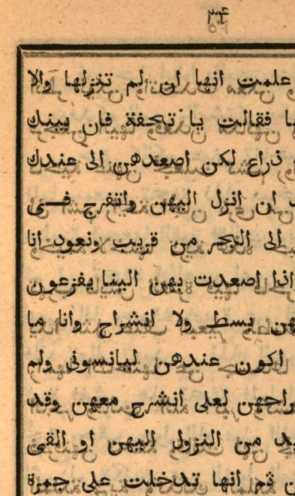 ٣٤
علمت انها ان لم تنزلها والا
فقالت يا تحفة فان بينك
ذراع لكن اصعدهن الى عندك
ان انزل اليهن واتفرج فى
الى البحر من قريب ونعود انا
اذا اصعدت بهن الينا يفزعون
بسط ولا انشراح وانا ما
اكون عندهن ليانسونى ولم
لعلى انشرح معهن وقد
من النزول اليهن او القى
ثم انها تدخلت على جمرة